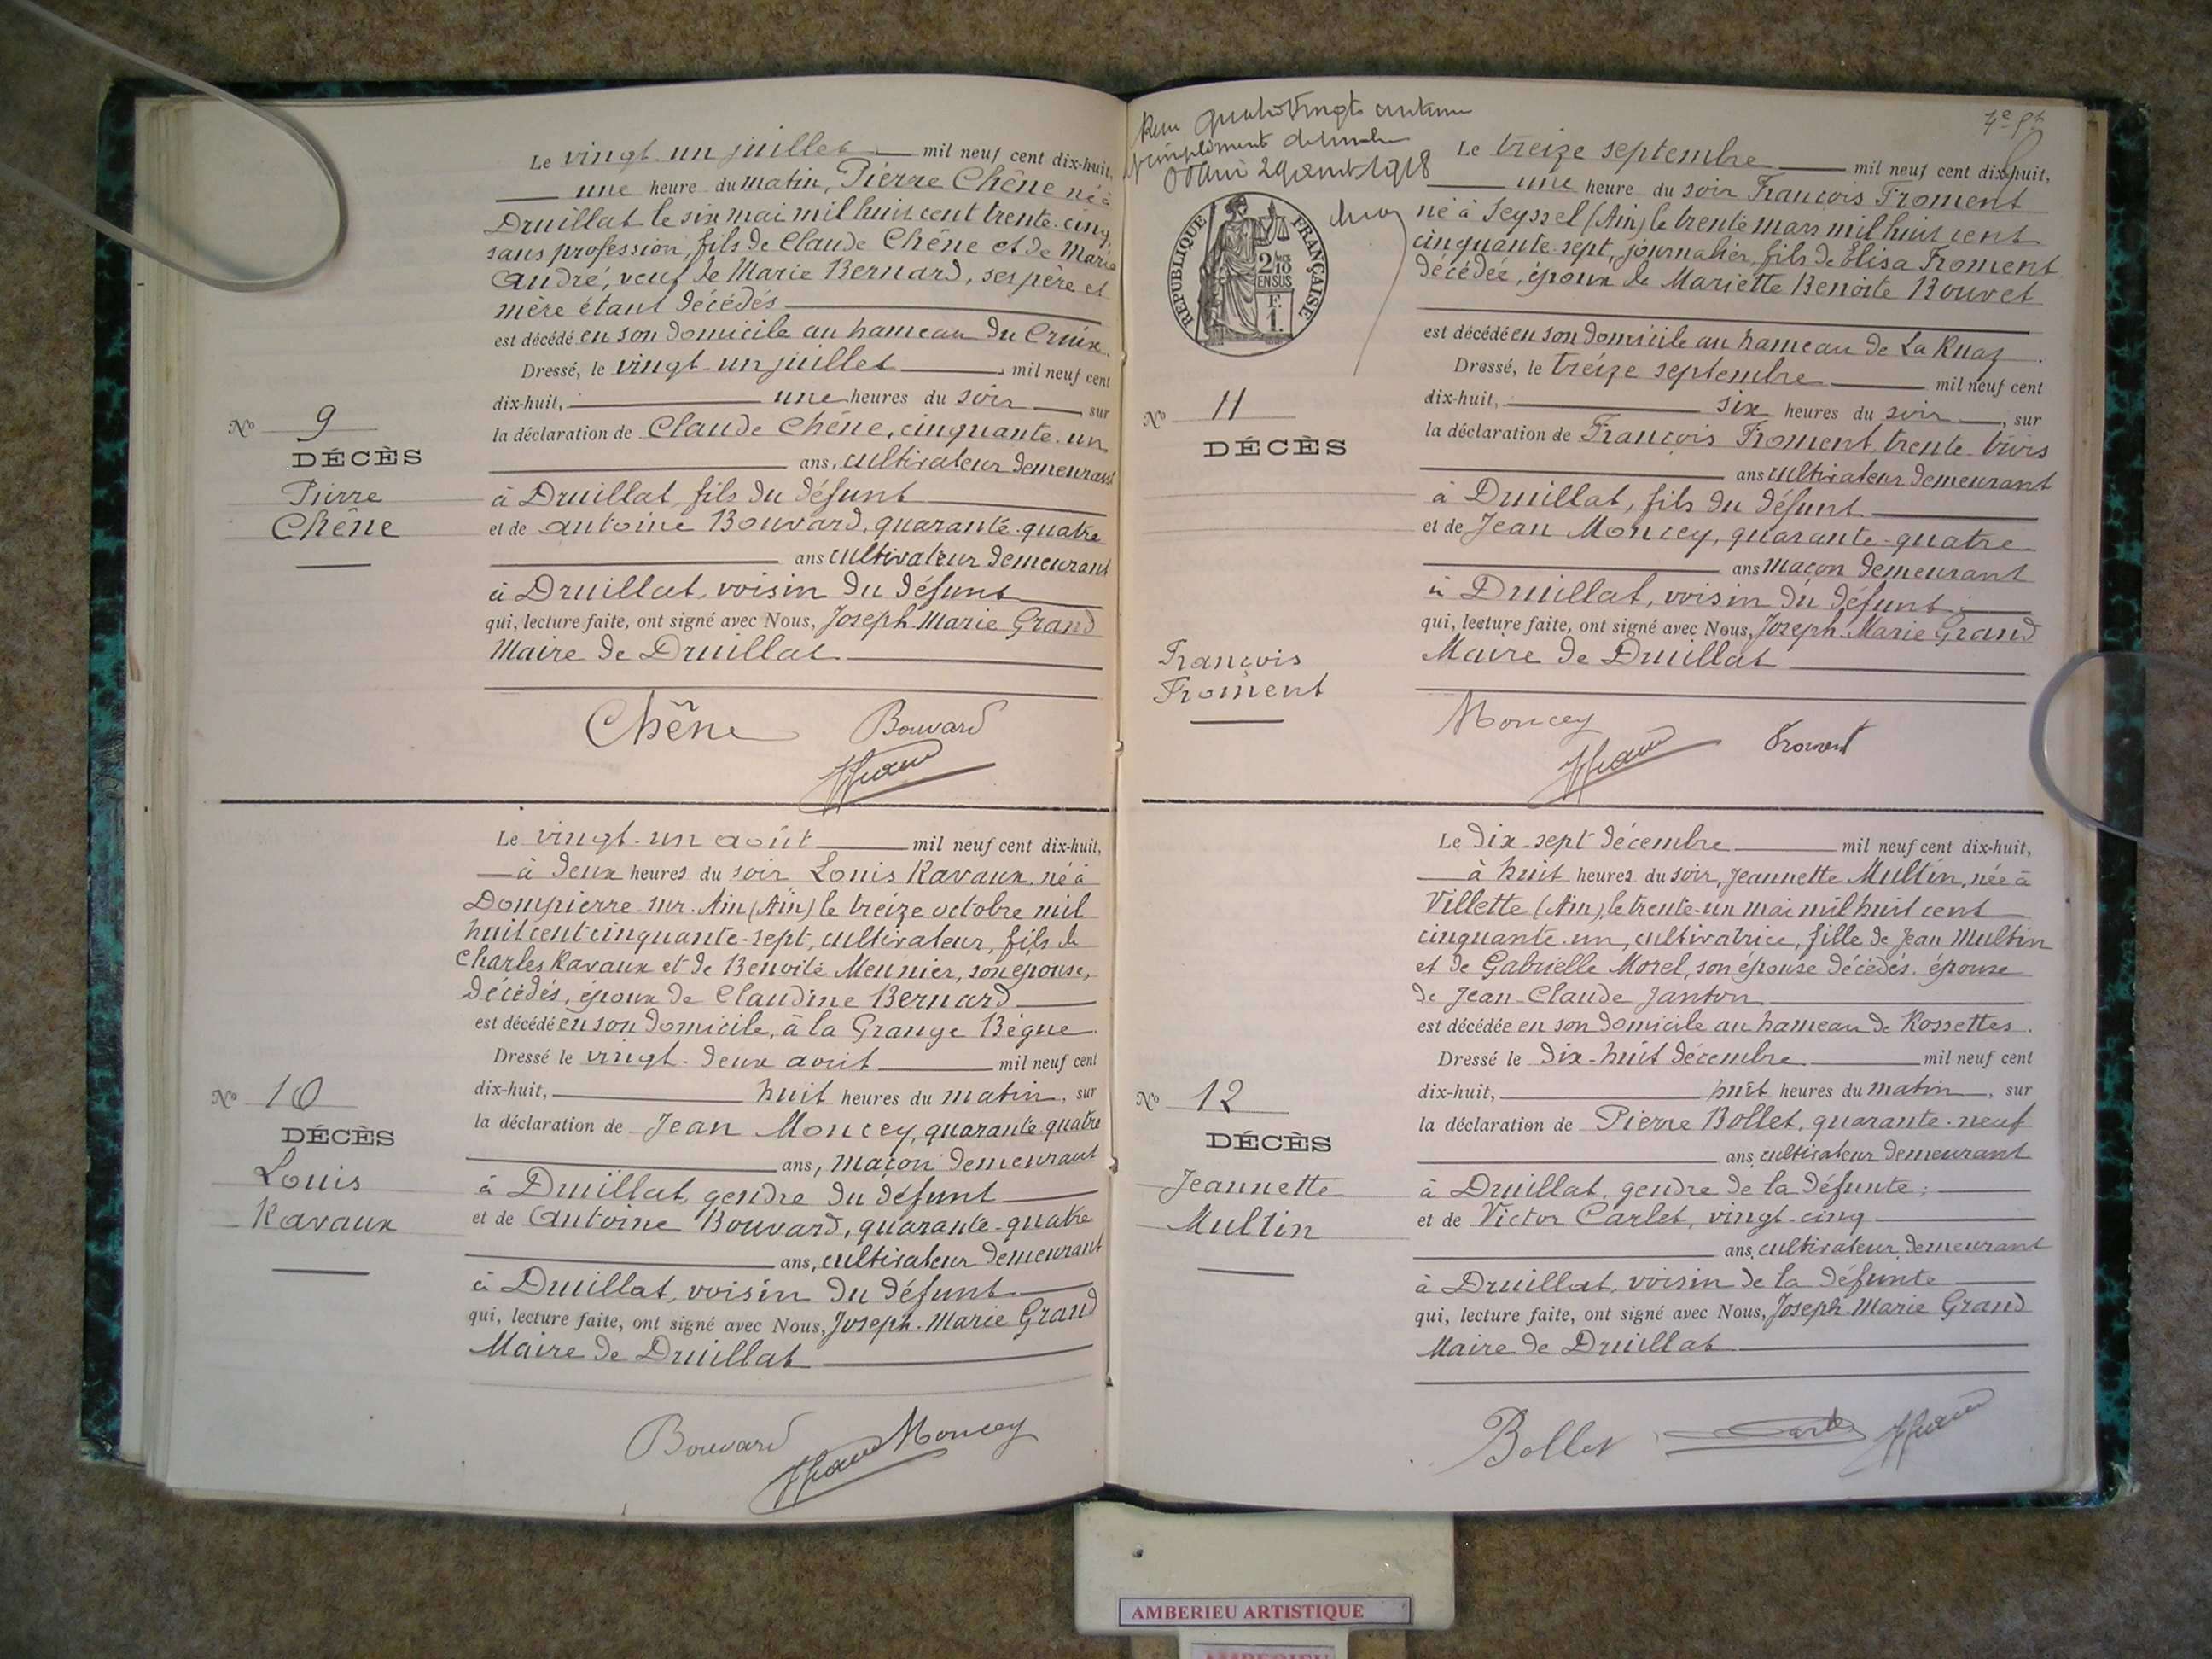 Le vingt-un juillet mil neuf cent dix-huit,
une heure du matin, Pierre Chêne né à
Druillat le six mai mil huit cent trente-cinq
sans profession, fils de Claude Chêne et de Marie
André, veuf de Marie Bernard, ses père et
mère étant décédés
est décédé en son domicile au hameau du Cruix
Dressé, le vingt-un juillet mil neuf cent
dix-huit, une heures du soir, sur
la déclaration de Claude Chêne, cinquante-un
ans, cultivateur demeurant
à Druillat, fils du défunt
et de Antoine Bouvard, quarante-quatre
ans cultivateur demeurant
à Druillat, voisin du défunt
qui, lecture faite, ont signé avec Nous, Joseph-Marie Grand
Maire de Druillat
No 9
DÉCÈS
Pierre
Chêne
Chêne Bouvard
Le vingt-un août mil neuf cent dix-huit,
à deux heures du soir Louis Ravaux né à
Dompierre-sur-Ain (Ain) le treize octobre mil
huit cent cinquante-sept, cultivateur, fils de
Charles Ravaux et de Benoite Meunier, son épouse,
décédés, époux de Claudine Bernard
est décédé en son domicile, à la Grange Bègue
Dressé le vingt-deux août mil neuf cent
dix-huit, huit heures du matin, sur
la déclaration de Jean Moncey, quarante-quatre
ans, maçon demeurant
à Druillat, gendre du défunt
et de Antoine Bouvard, quarante-quatre
ans, cultivateur demeurant
à Druillat, voisin du défunt
qui, lecture faite, ont signé avec Nous, Joseph-Marie Grand
Maire de Druillat
No 10
DÉCÈS
Louis
Ravaux
Bouvard Moncey
quatre vingts centimes
1918
RÉPUBLIQUE FRANÇAISE
2/10
EN SUS
F.
1.
Le treize septembre mil neuf cent dix-huit,
une heure du soir François Froment
né à Seyssel (Ain) le trente mars mil huit cent
cinquante-sept, journalier, fils de Elisa Froment
décédée, époux de Mariette Benoite Bouvet
est décédé en son domicile au hameau de La Ruaz.
Dressé, le treize septembre mil neuf cent
dix-huit, six heures du soir, sur
la déclaration de François Froment, trente-trois
ans cultivateur demeurant
à Druillat, fils du défunt
et de Jean Moncey, quarante-quatre
ans maçon demeurant
à Druillat, voisin du défunt;
qui, lecture faite, ont signé avec Nous, Joseph-Marie Grand
Maire de Druillat
No 11
DÉCÈS
François
Froment
Moncey Froment
Le dix-sept décembre mil neuf cent dix-huit,
à huit heures du soir, Jeannette Multin, née à
Villette (Ain), le trente-un mai mil huit cent
cinquante-un, cultivatrice, fille de Jean Multin
et de Gabrielle Morel, son épouse décédés. épouse
de Jean-Claude Janton
est décédée en son domicile au hameau de Rossettes.
Dressé le dix-huit décembre mil neuf cent
dix-huit, huit heures du matin, sur
la déclaration de Pierre Bollet, quarante-neuf
ans, cultivateur demeurant
à Druillat, gendre de la défunte;
et de Victor Carlet, vingt-cinq
ans, cultivateur, demeurant
à Druillat, voisin de la défunte
qui, lecture faite, ont signé avec Nous, Joseph-Marie Grand
Maire de Druillat
No 12
DÉCÈS
Jeannette
Multin
Bollet
AMBERIEU ARTISTIQUE
AMBERIEU